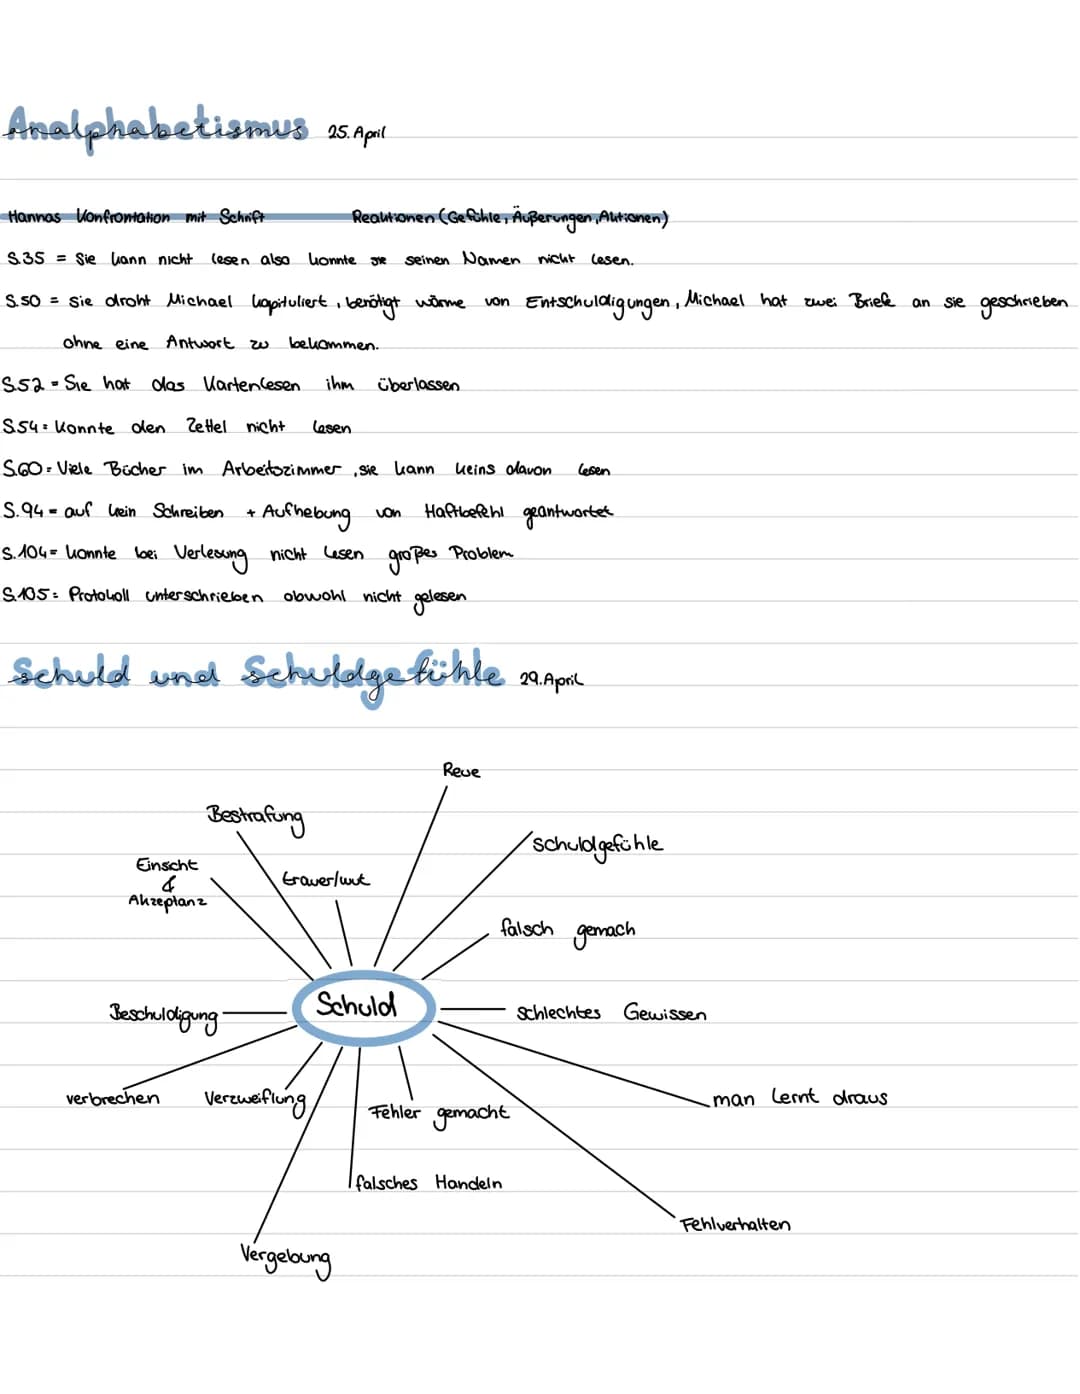 Analphabetismus 25. April
Hannas Konfrontation mit Schrift Reaktionen (Gefühle, Äußerungen, Aktionen)
S.35 = Sie kann nicht lesen also konnte sie seinen Namen nicht lesen.
S.50 = Sie droht Michael kapituliert, benötigt wärme von Entschuldigungen, Michael hat zwei Briefe an sie geschrieben
ohne eine Antwort zu bekommen.
S.52 = Sie hat das Kartenlesen ihm überlassen
S.54 = Konnte den Zettel nicht lesen
S.60 = Viele Bücher im Arbeitszimmer, sie kann keins davon lesen
S.94 = auf kein Schreiben + Aufhebung von Haftbefehl geantwortet
S.104 = konnte bei Verlesung nicht lesen großes Problem
S.105 = Protokoll unterschrieben obwohl nicht gelesen
Schuld und Schuldgefühle 29. April
Reue
Bestrafung
schuldgefühle
Einsicht
&
Akzeptanz
trauer/wut
falsch gemach
Schuld
Beschuldigung
schlechtes Gewissen
verbrechen
Verzweiflung
Fehler gemacht
man lernt draus
falsches Handeln
Fehlverhalten
Vergebung